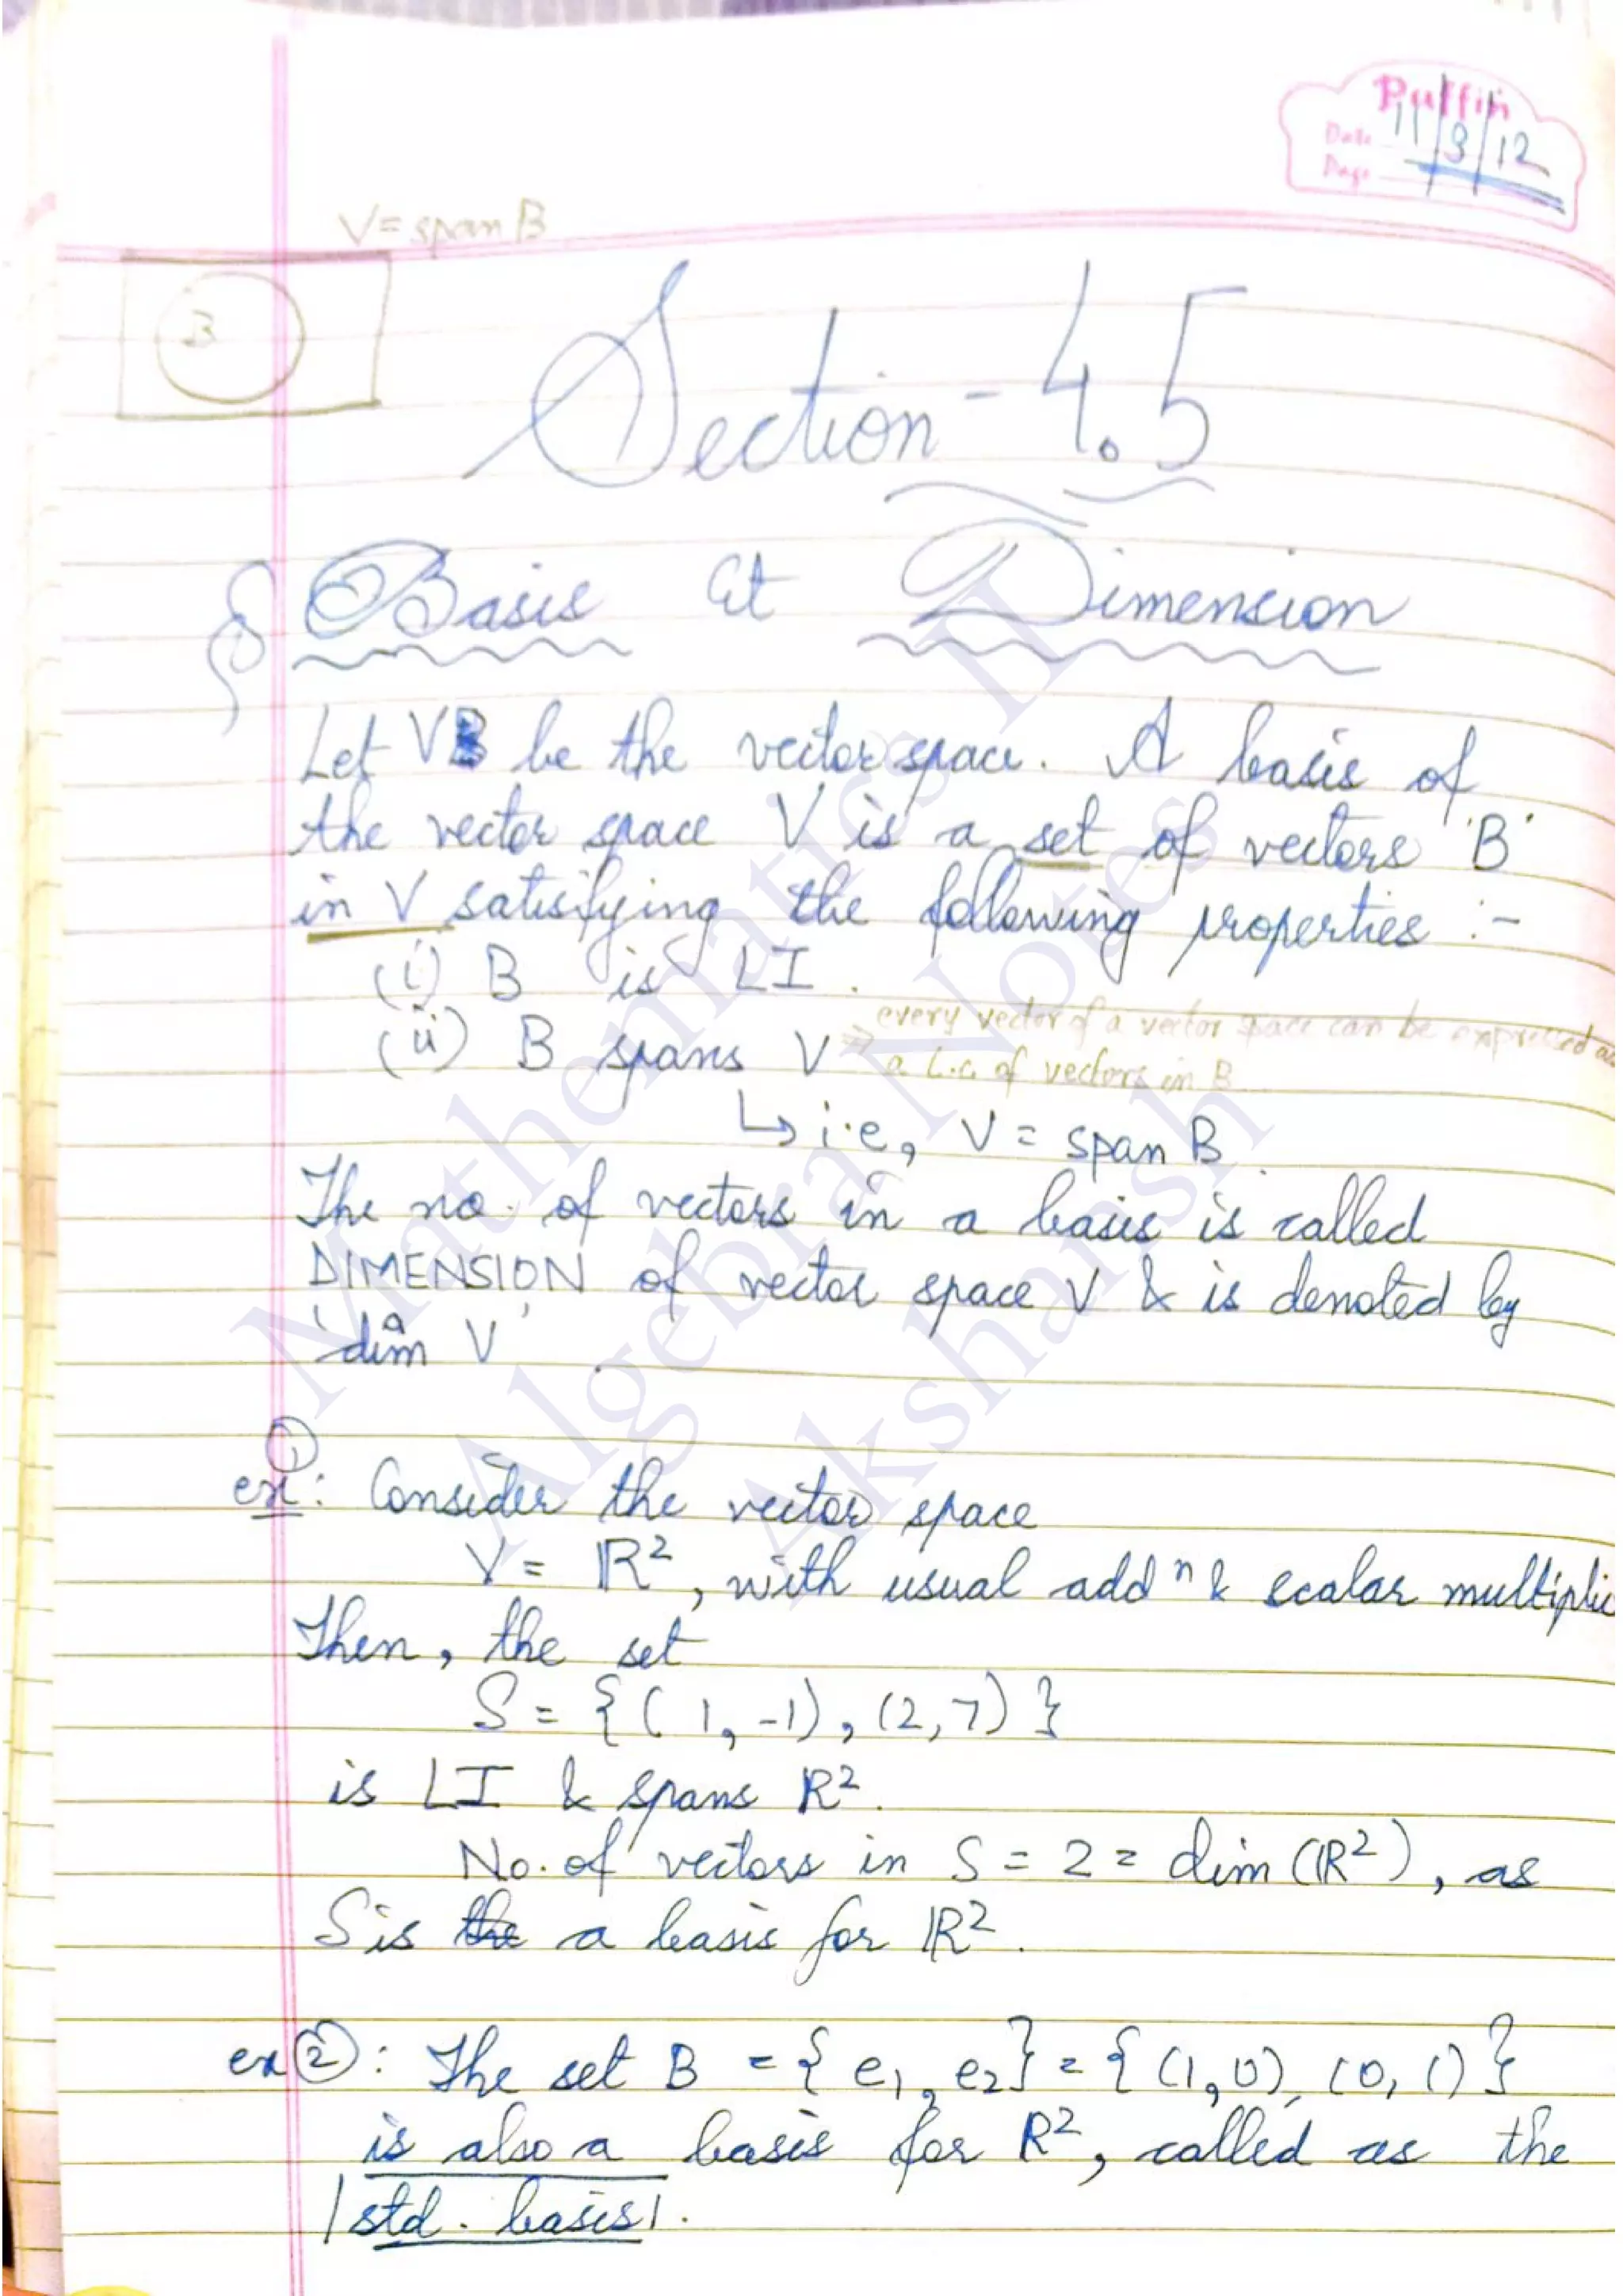 Puffin
Date 11/9/12
Page
V = span B
B
Section - 4.5
§ Basis & Dimension
Let V be the vector space. A basis of
the vector space V is a set of vectors 'B'
in V satisfying the following properties :-
(i) B is LI.
(ii) B spans V ⇒ every vector of a vector space can be expressed as
a L.C. of vectors in B
↳ i.e, V = span B.
The no. of vectors in a basis is called
DIMENSION of vector space V & is denoted by
'dim V'.
ex ①: Consider the vector space
V = ℝ², with usual addⁿ & scalar multiplic
Then, the set
S = {(1, -1), (2, 7)}
is LI & spans ℝ².
No. of vectors in S = 2 = dim (ℝ²), as
S is the a basis for ℝ².
ex ②: The set B = {e₁, e₂} = {(1, 0), (0, 1)}
is also a basis for ℝ², called as the
|std. basis|.
Mathematics II
Algebra Notes
Akshansh